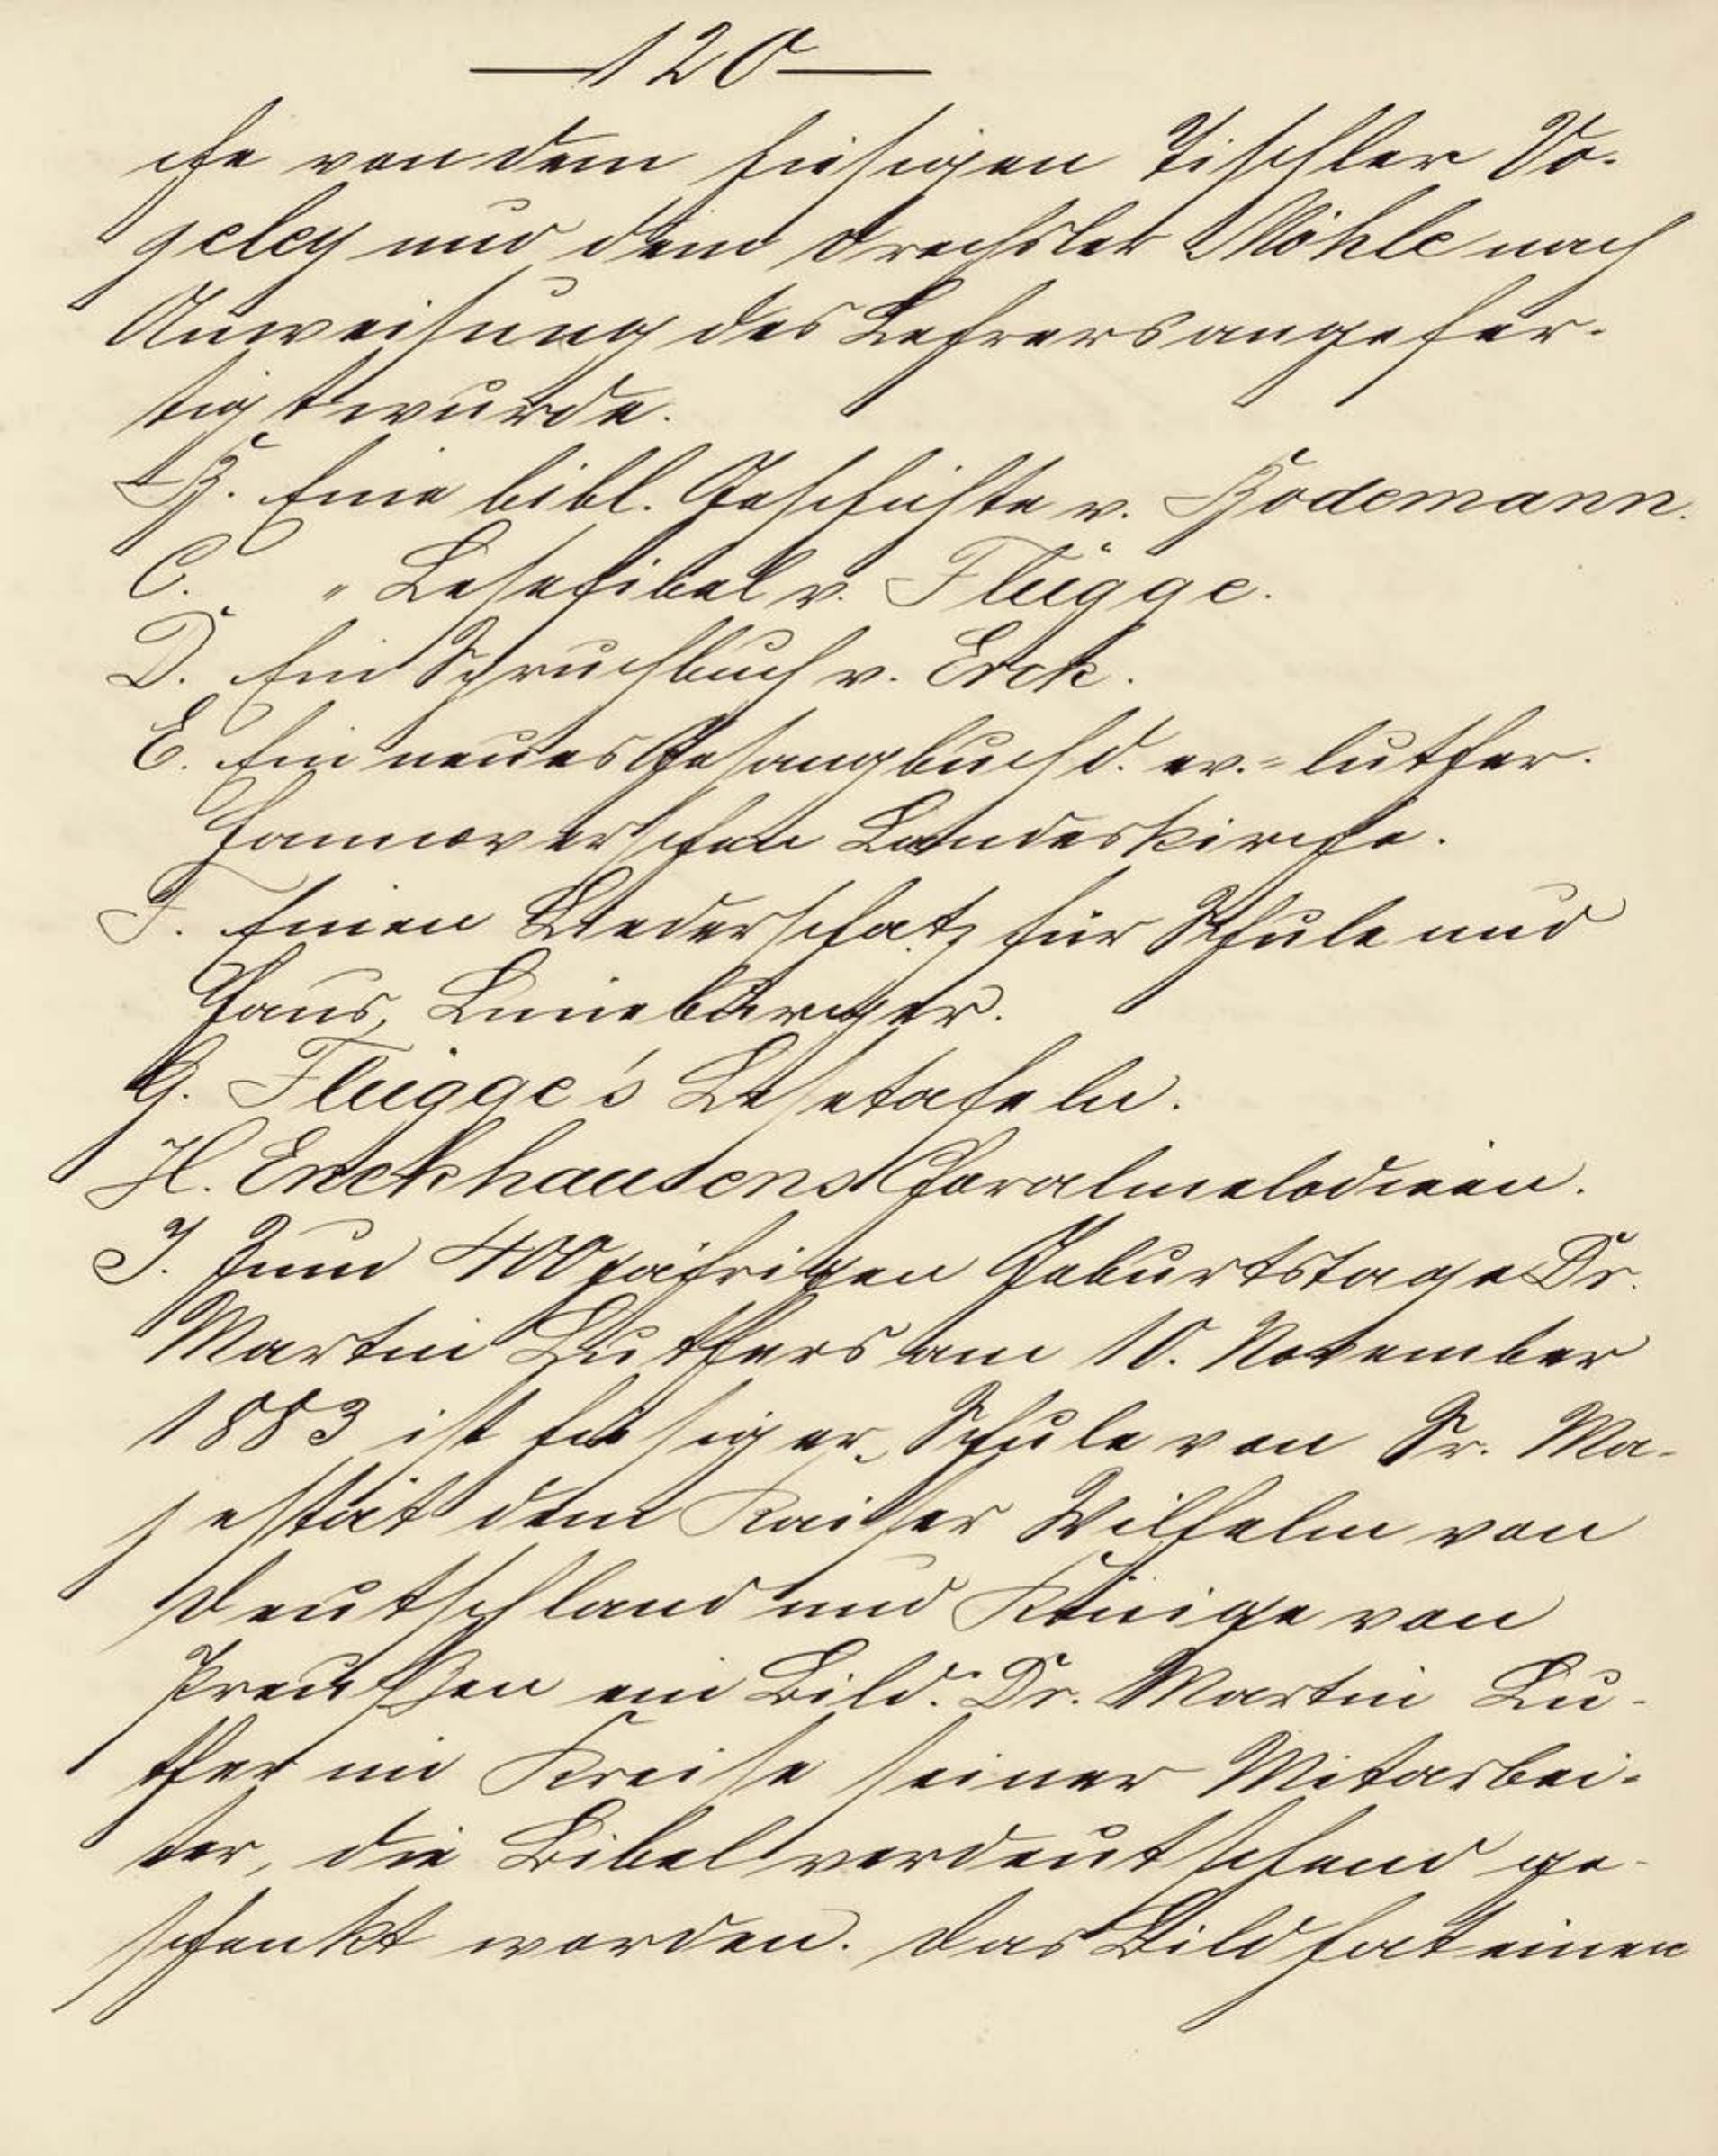 —120—
che von dem hiesigen Tischler Vo-
geley und dem Drechsler Möhle nach
Anweisung des Lehrers angefer-
tigt wurde.
B. Eine bibl. Geschichte v. Bodemann.
C. " Lesefibel v. Flügge.
D. Ein Spruchbuch v. Erck.
E. Ein neues Gesangbuch d. ev.=luther.
hannoverschen Landeskirche.
F. Einen Liederschatz für Schule und
Haus, Lüneburger.
G. Flügge's Lesetafeln.
H. Enckhausens Choralmelodieen.
I. Zum 400jährigen Geburtstage Dr.
Martin Luthers am 10. November
1883 ist hiesiger Schule von Sr. Ma-
jestät dem Kaiser Wilhelm von
Deutschland und Könige von
Preußen ein Bild: Dr. Martin Lu-
ther im Kreise seiner Mitarbei-
ter, die Bibel verdeutschend ge-
schenkt worden. Das Bild hat einen